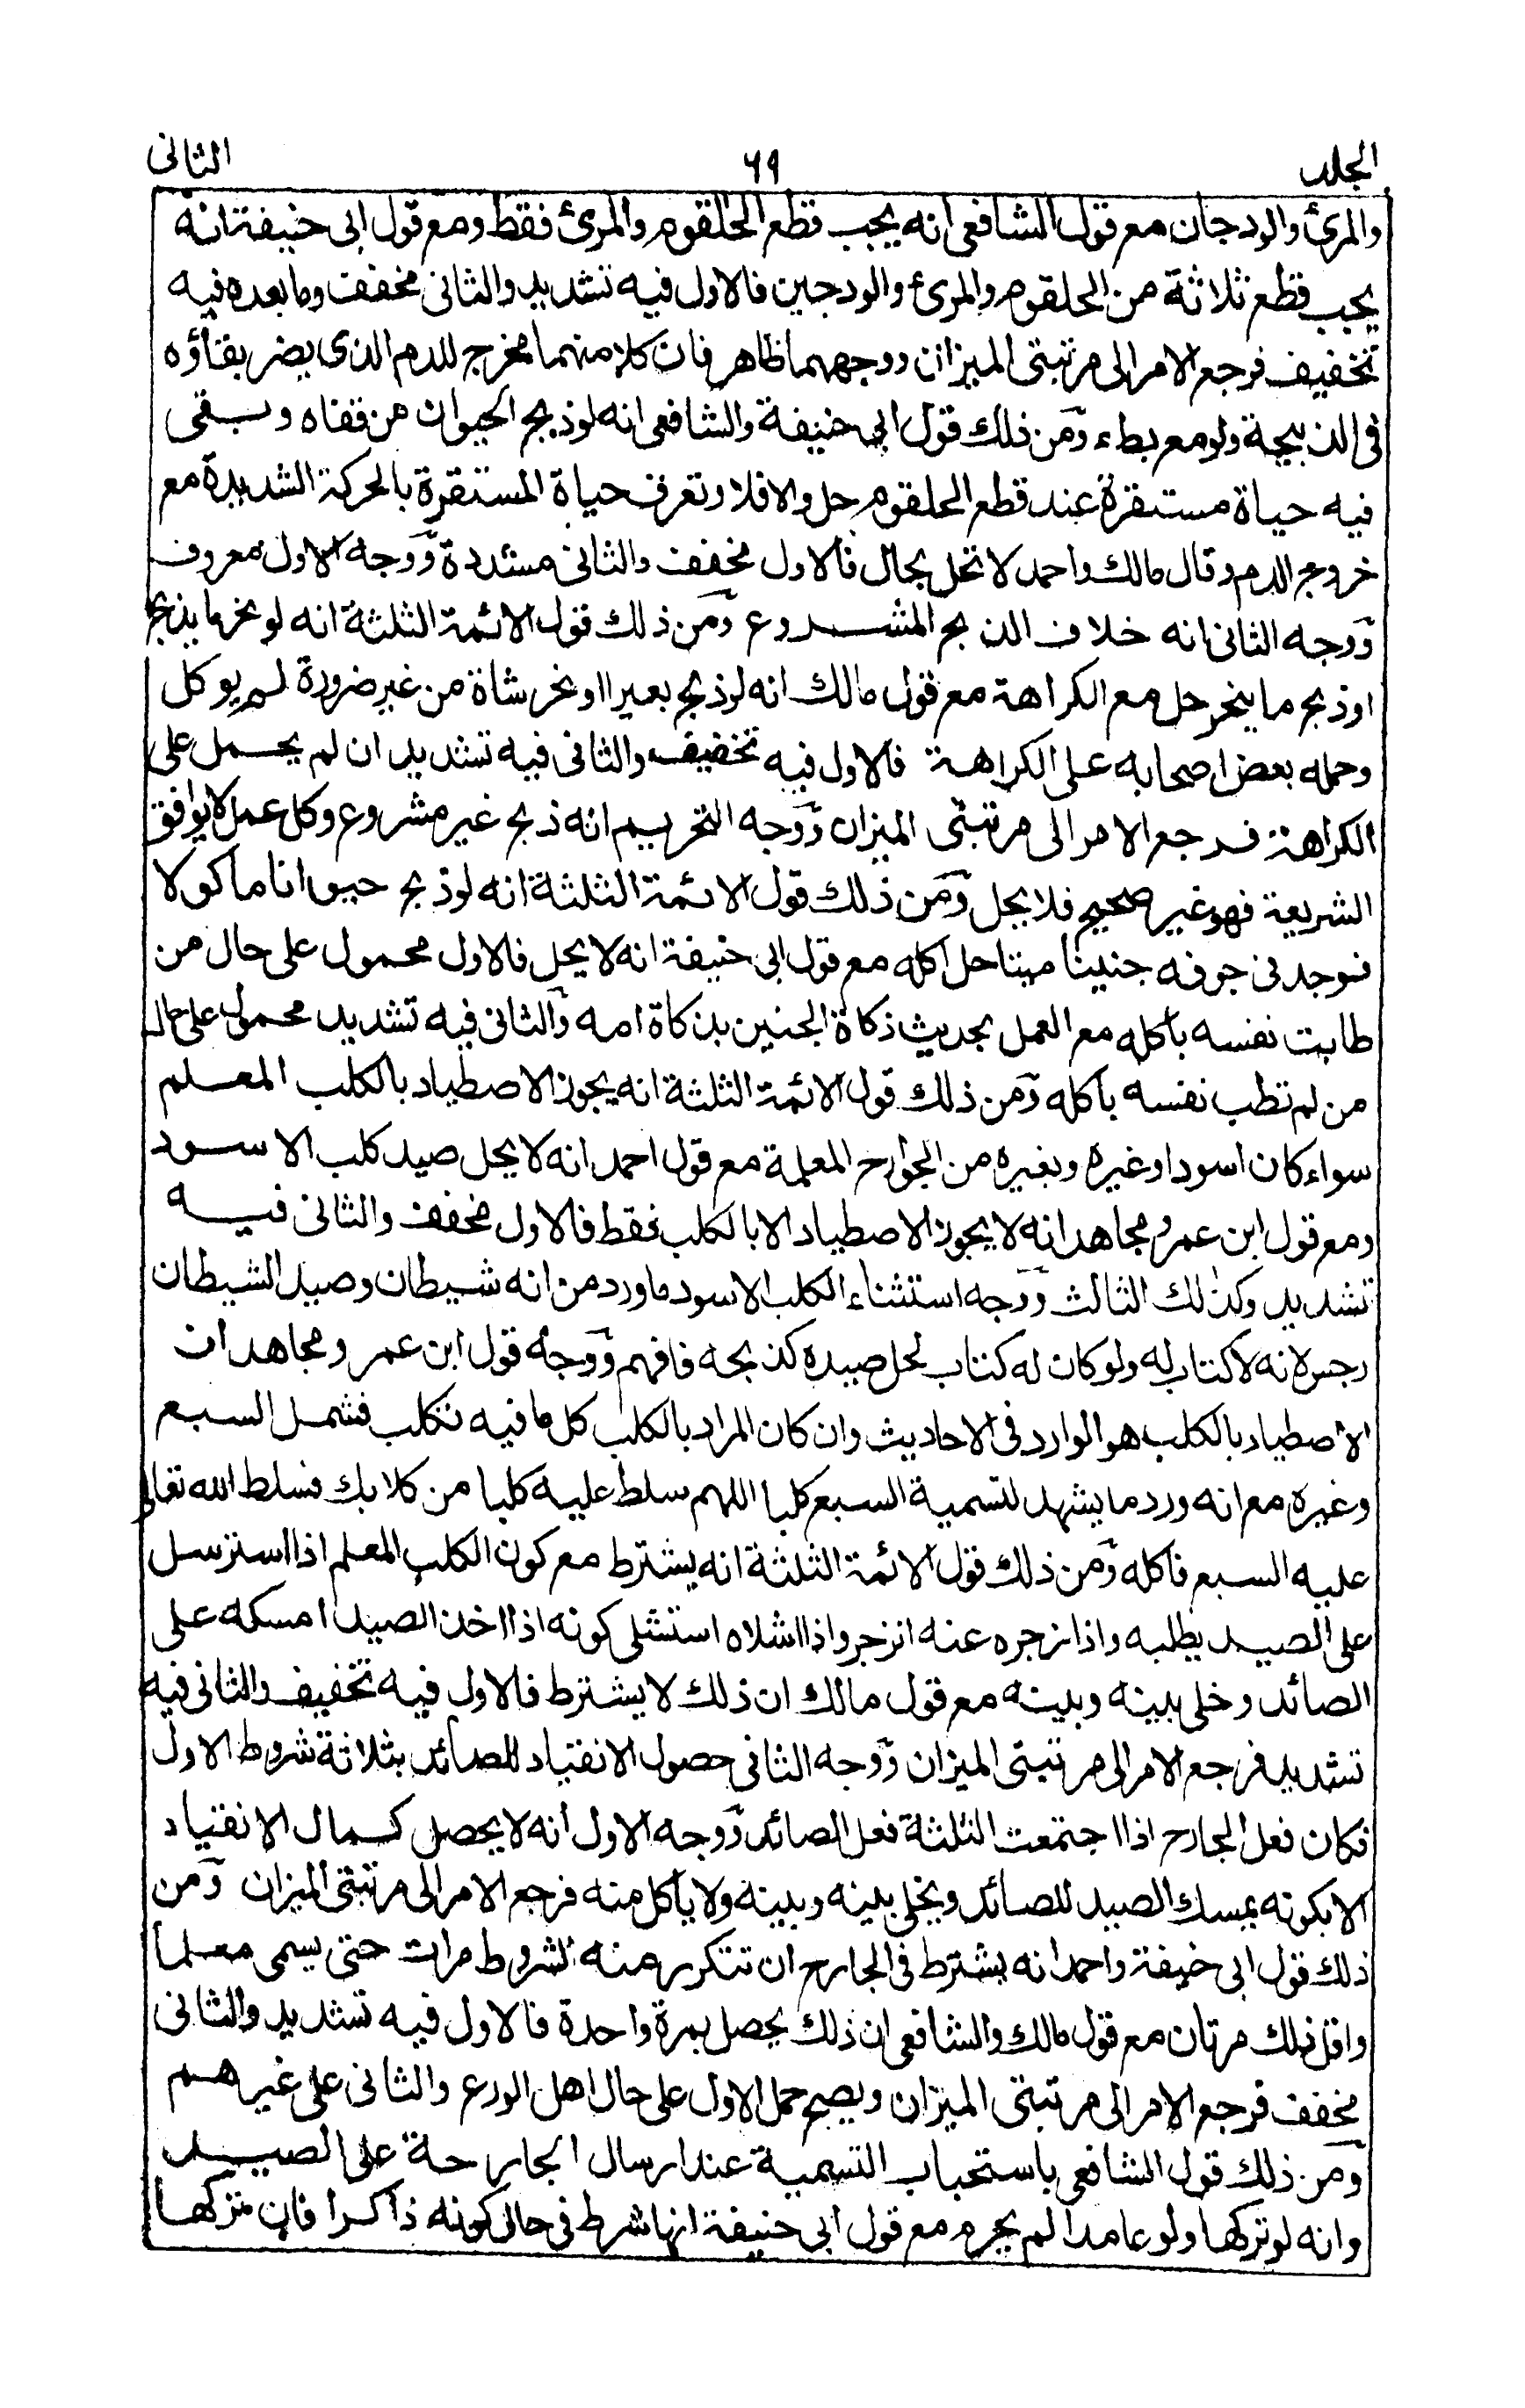 الجلد ٦٩ الثانى
والمرئ والودجان مع قول الشافعى انه يجب قطع الحلقوم والمرئ فقط ومع قول ابى حنيفة انه
يجب قطع ثلاثة من الحلقوم والمرئ والودجين فالاول فيه تشديد والثانى مخفف وما بعده فيه
تخفيف فرجع الامر الى مرتبتى الميزان ووجههما ظاهر فان كلا منهما مخرج للدم الذى يضر بقاؤه
فى الذبيحة ولو مع بطاء ومن ذلك قول ابى حنيفة والشافعى انه لو ذبح الحيوان من قفاه وبقى
فيه حياة مستقرة عند قطع الحلقوم حل والا فلا وتعرف حياة المستقرة بالحركة الشديدة مع
خروج الدم وقال مالك واحمد لا تحل بحال فالاول مخفف والثانى مشددة ووجه الاول معروف
ووجه الثانى انه خلاف الذبح المشروع ومن ذلك قول الائمة الثلثة انه لو نحر ما يذبح
او ذبح ما ينحر حل مع الكراهة مع قول مالك انه لو ذبح بعيرا او نحر شاة من غير ضرورة لم يوكل
وحمله بعض اصحابه على الكراهة فالاول فيه تخفيف والثانى فيه تشديد ان لم يحمل على
الكراهة فرجع الامر الى مرتبتى الميزان ووجه التحريم انه ذبح غير مشروع وكل عمل لا يوافق
الشريعة فهو غير صحيح فلا يحل ومن ذلك قول الائمة الثلثة انه لو ذبح حيوانا ماكولا
فوجد فى جوفه جنينا ميتا حل اكله مع قول ابى حنيفة انه لا يحل فالاول محمول على حال من
طابت نفسه بأكله مع العمل بحديث ذكاة الجنين بذكاة امه والثانى فيه تشديد محمول على حال
من لم تطب نفسه بأكله ومن ذلك قول الائمة الثلثة انه يجوز الاصطياد بالكلب المعلم
سواء كان اسود او غيره وبغيره من الجوارح المعلمة مع قول احمد انه لا يحل صيد كلب الاسود
ومع قول ابن عمر ومجاهد انه لا يجوز الاصطياد الا بالكلب فقط فالاول مخفف والثانى فيه
تشديد وكذلك الثالث ووجه استثناء الكلب الاسود ما ورد من انه شيطان وصيد الشيطان
رجس لانه لا كتاب له ولو كان له كتاب لحل صيده كذبحه فافهم ووجه قول ابن عمر ومجاهد ان
الاصطياد بالكلب هو الوارد فى الاحاديث وان كان المراد بالكلب كل ما فيه تكلب فشمل السبع
وغيره مع انه ورد ما يشهد لتسمية السبع كلبا اللهم سلط عليه كلبا من كلابك فسلط الله تعالى
عليه السبع فاكله ومن ذلك قول الائمة الثلثة انه يشترط مع كون الكلب المعلم اذا استرسل
على الصيد يطلبه واذا زجره عنه انزجر واذا اشلاه استشلى كونه اذا اخذ الصيد امسكه على
الصائد وخلى بينه وبينه مع قول مالك ان ذلك لا يشترط فالاول فيه تخفيف والثانى فيه
تشديد فرجع الامر الى مرتبتى الميزان ووجه الثانى حصول الانقياد للصائد بثلاثة شروط الاول
فكان فعل الجارح اذا اجتمعت الثلثة فعل الصائد ووجه الاول انه لا يحصل كمال الانقياد
الا بكونه يمسك الصيد للصائد ويخلى بينه وبينه ولا يأكل منه فرجع الامر الى مرتبتى الميزان ومن
ذلك قول ابى حنيفة واحمد انه يشترط فى الجارح ان تتكرر منه الشروط مرات حتى يسمى معلما
واقل ذلك مرتان مع قول مالك والشافعى ان ذلك يحصل بمرة واحدة فالاول فيه تشديد والثانى
مخفف فرجع الامر الى مرتبتى الميزان ويصح حمل الاول على حال اهل الورع والثانى على غيرهم
ومن ذلك قول الشافعى باستحباب التسمية عند ارسال الجارحة على الصيد
وانه لو تركها ولو عامدا لم يحرم مع قول ابى حنيفة انها شرط فى حال كونه ذاكرا فان تركها